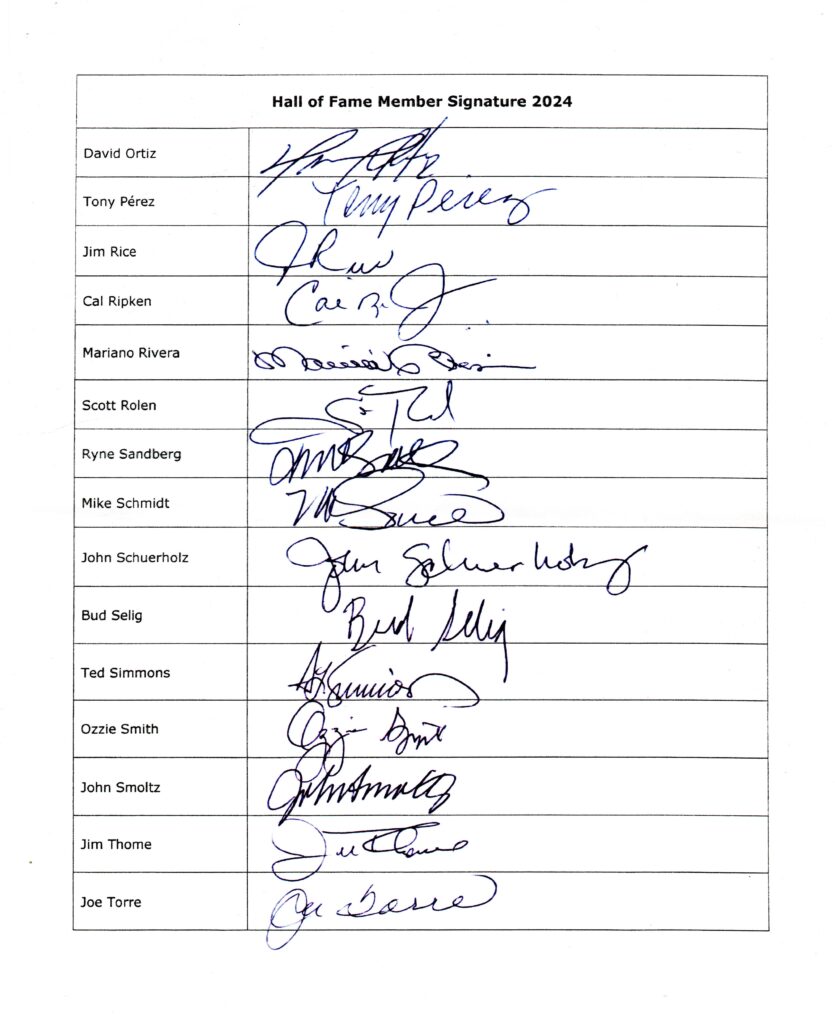 Hall of Fame Member Signature 2024
David Ortiz
Tony Pérez Tony Pérez
Jim Rice
Cal Ripken
Mariano Rivera
Scott Rolen
Ryne Sandberg
Mike Schmidt
John Schuerholz John Schuerholz
Bud Selig Bud Selig
Ted Simmons
Ozzie Smith Ozzie Smith
John Smoltz John Smoltz
Jim Thome
Joe Torre Joe Torre